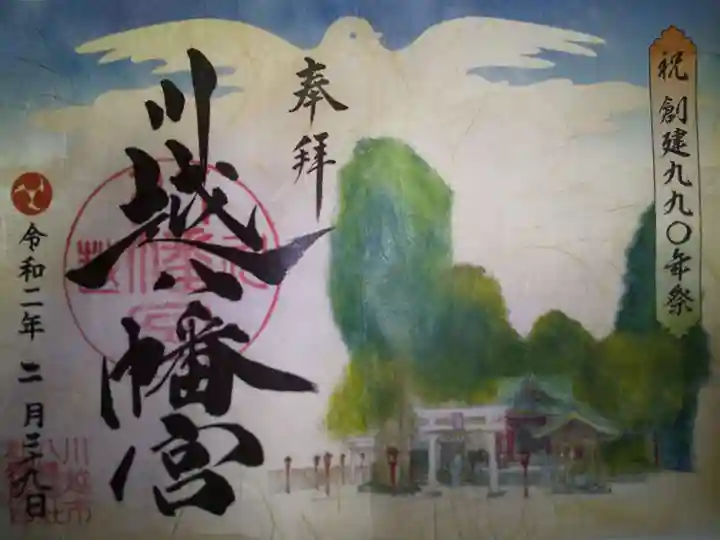 祝 創建九九〇年祭
奉拝
川越八幡宮
令和二年 二月二十九日